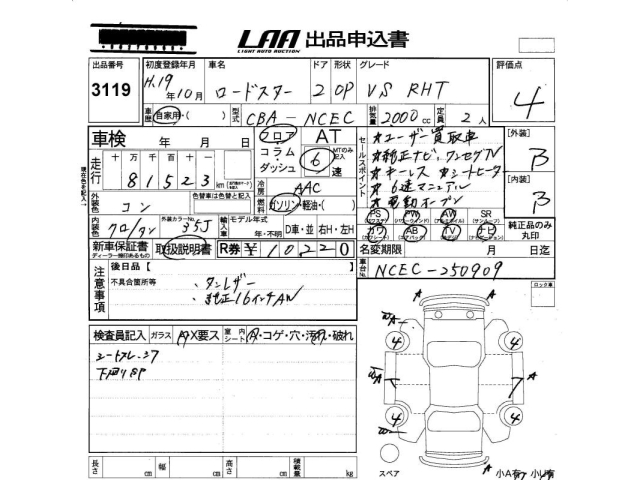 LAA 出品申込書
LIGHT AUTO AUCTION
出品番号 初度登録年月 車名 ドア 形状 グレード 評価点
3119 H.19年10月 ロードスター 2 OP VS RHT 4
車歴 自家用・( ) 型式 CBA-NCEC 排気量 2000cc 定員 2人
車検 年 月 日 フロア コラム・ダッシュ AT 6 MTのみ記入 速
走行 十 万 千 百 十 一
81523 km
冷房 AAC
外装色 コン 色替車は色替と記入 燃料 ガソリン・軽油・( )
内装色 外装カラーNo. 35J 輸入車 モデル年式 年・不明 D車・並 右H・左H
新車保証書 ディーラー捺印あるもの 取扱説明書 R券 ¥10220
セールスポイント
ユーザー買取車
純正ナビ、ワンセグTV
キーレス シートヒーター
6速マニュアル
電動オープン
PS PW AW SR
カワ AB TV ナビ
純正品のみ丸印
【外装】 B
【内装】 B
名変期限 月 日迄
車台No. NCEC-250909
注意事項 後日品【
不具合箇所等 ・タンレザー
・純正16インチAW
ロック車
検査員記入 ガラス A・X要ス 室内シート A・コゲ・穴・汚れ・破れ
下廻りSP
長さ cm 幅 cm 高さ cm 積載量 kg
A A
4 4
A A
4 4
スペア A 小A有 小U有